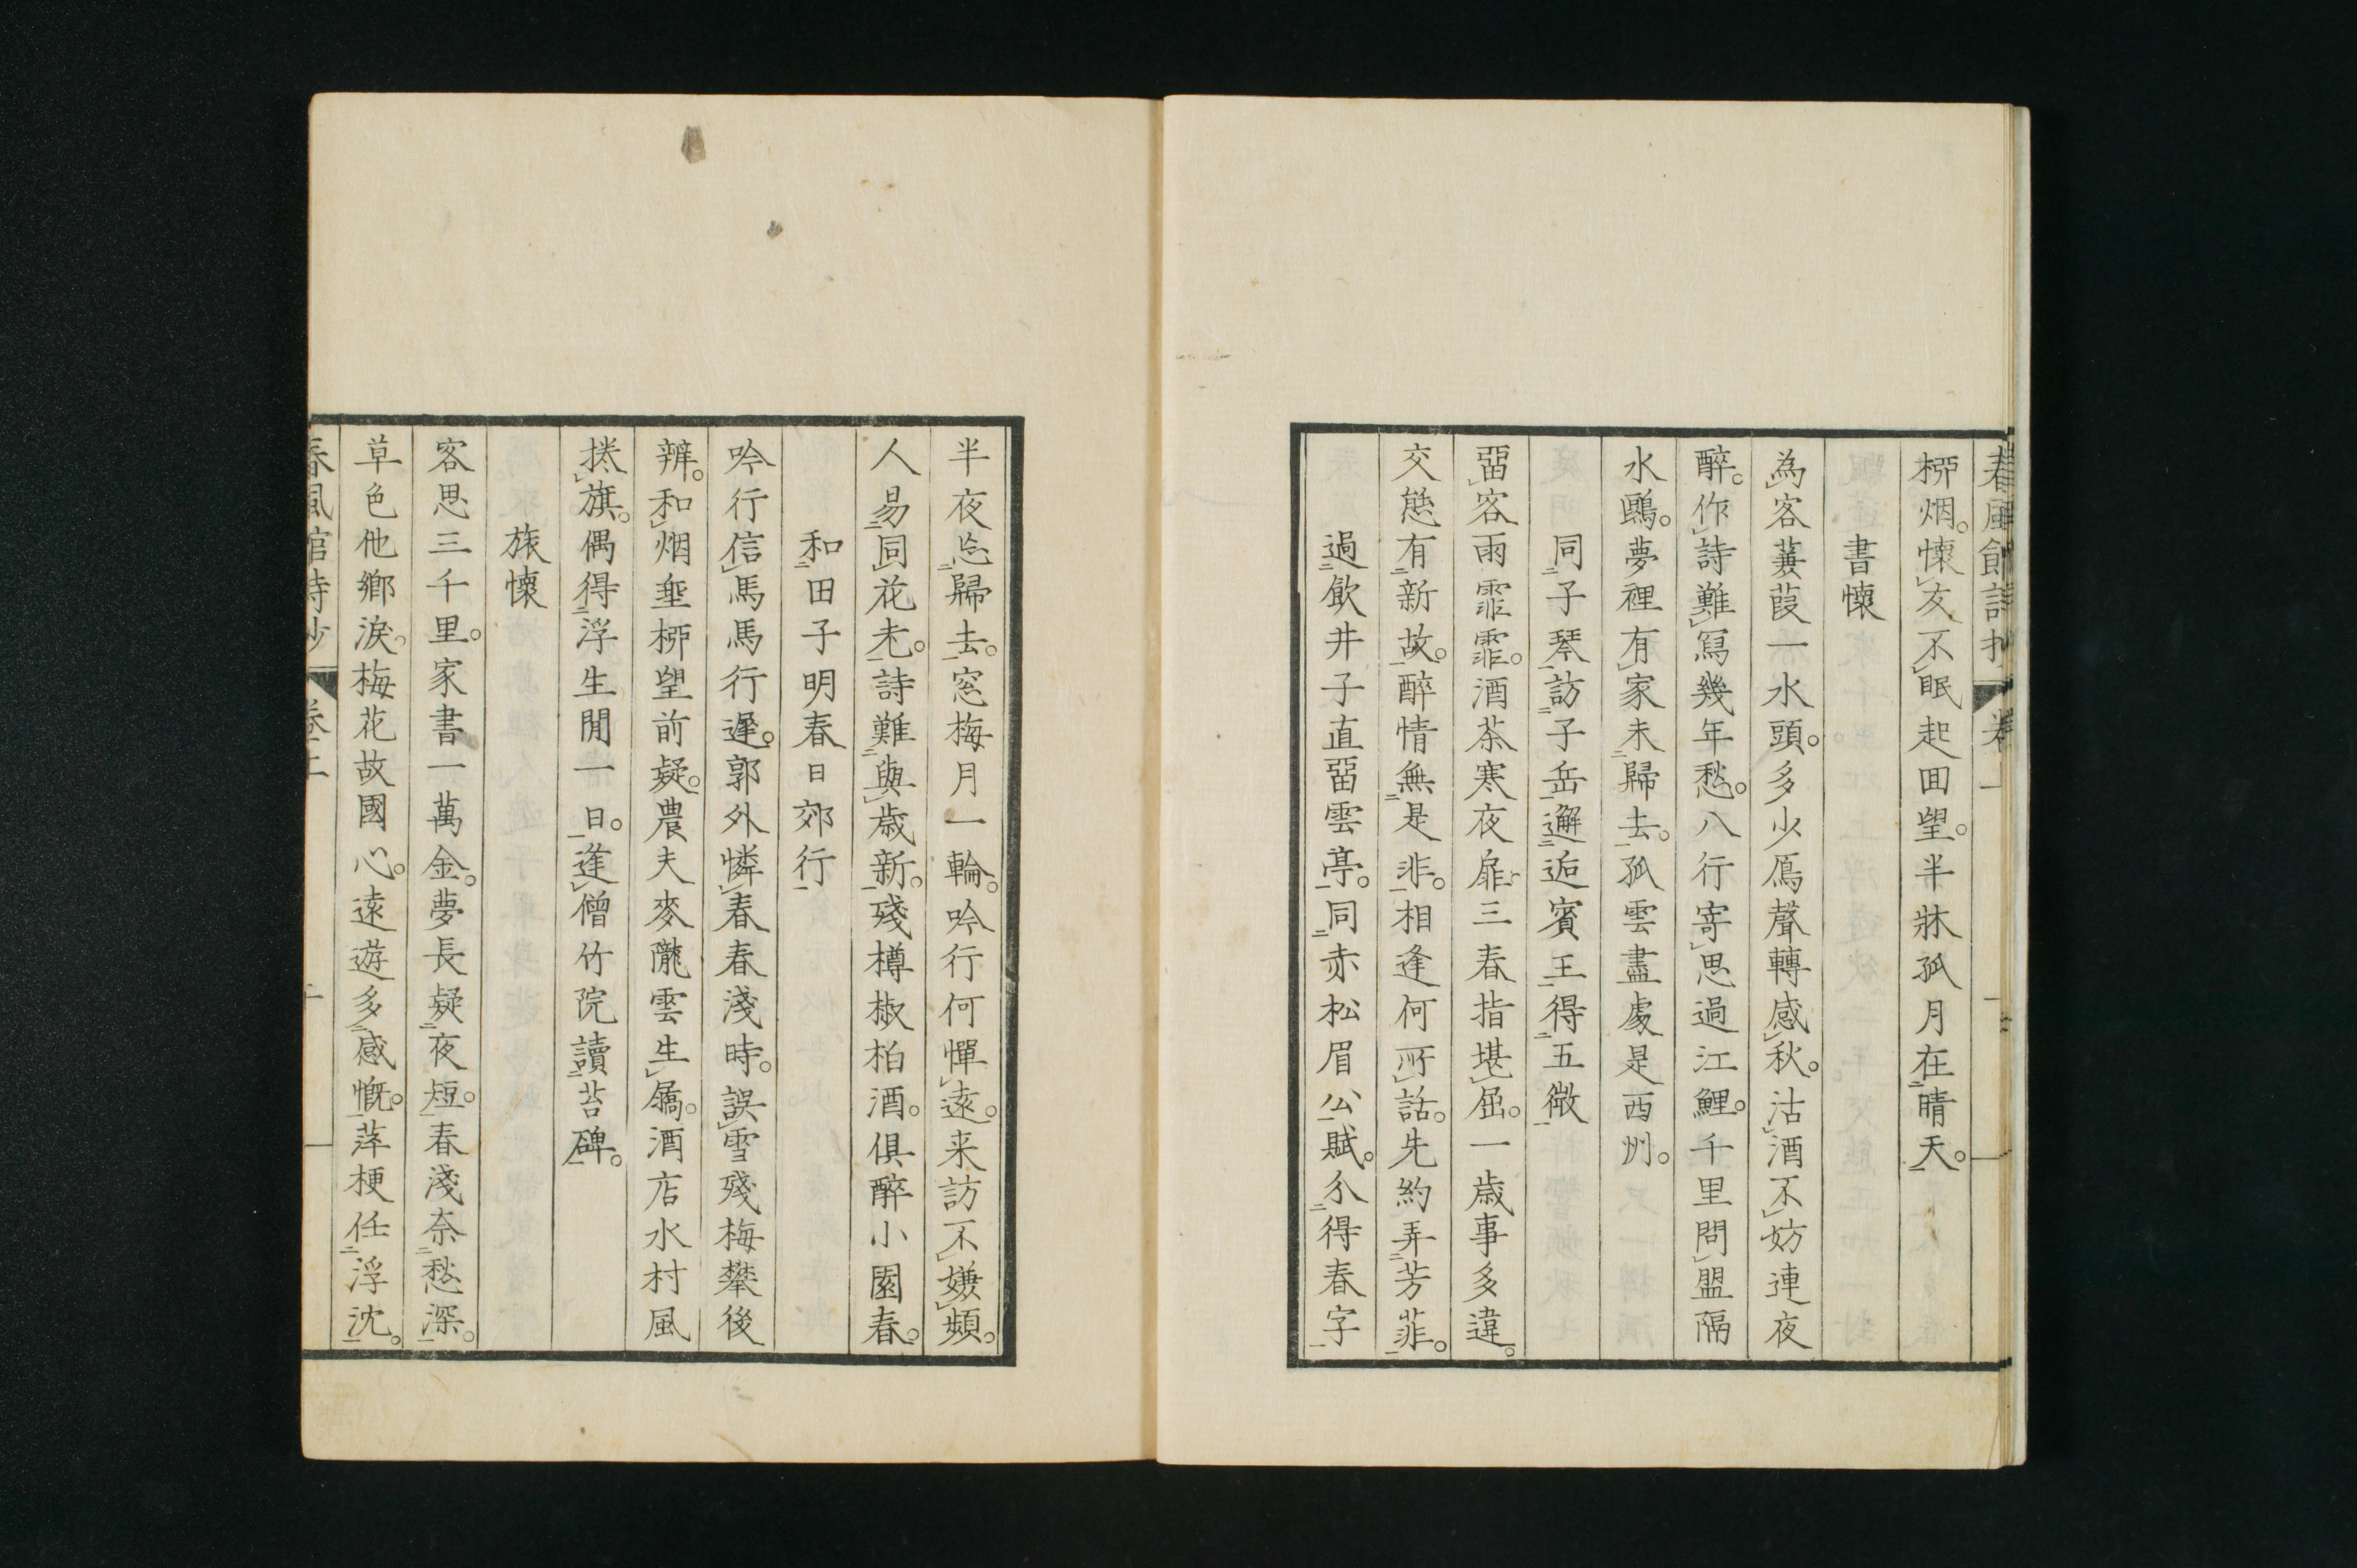 春風館詩抄 卷上
栁烟。懷友不眠起回望。半牀孤月在晴天。
書懷
為客蒹葭一水頭。多少鴈聲轉感秋。沽酒不妨連夜
醉。作詩難寫幾年愁。八行寄思過江鯉。千里問盟隔
水鷗。夢裡有家未歸去。孤雲盡處是西州。
同子琴訪子岳邂逅賓王得五微
畱客雨霏霏。酒茶寒夜扉三春指堪屈。一歳事多違。
交態有新故。醉情無是非。相逢何所話。先約弄芳菲。
過飲井子直畱雲亭。同赤松眉公賦。分得春字
半夜忘歸去。窓梅月一輪。吟行何憚遠。来訪不嫌頻。
人昜同花老。詩難與歳新。殘樽椒柏酒。俱醉小園春。
和田子明春日郊行
吟行信馬馬行遲。郭外憐春春淺時。誤雪殘梅攀後
辨。和烟埀栁望前疑。農夫麥隴雲生屩。酒店水村風
捲旗。偶得浮生閒一日。逢僧竹院讀苔碑。
旅懷
客思三千里。家書一萬金。夢長疑夜短。春淺奈愁深。
草色他鄉淚。梅花故國心。遠遊多感慨。萍梗任浮沈。
春風館詩抄 卷上 十一